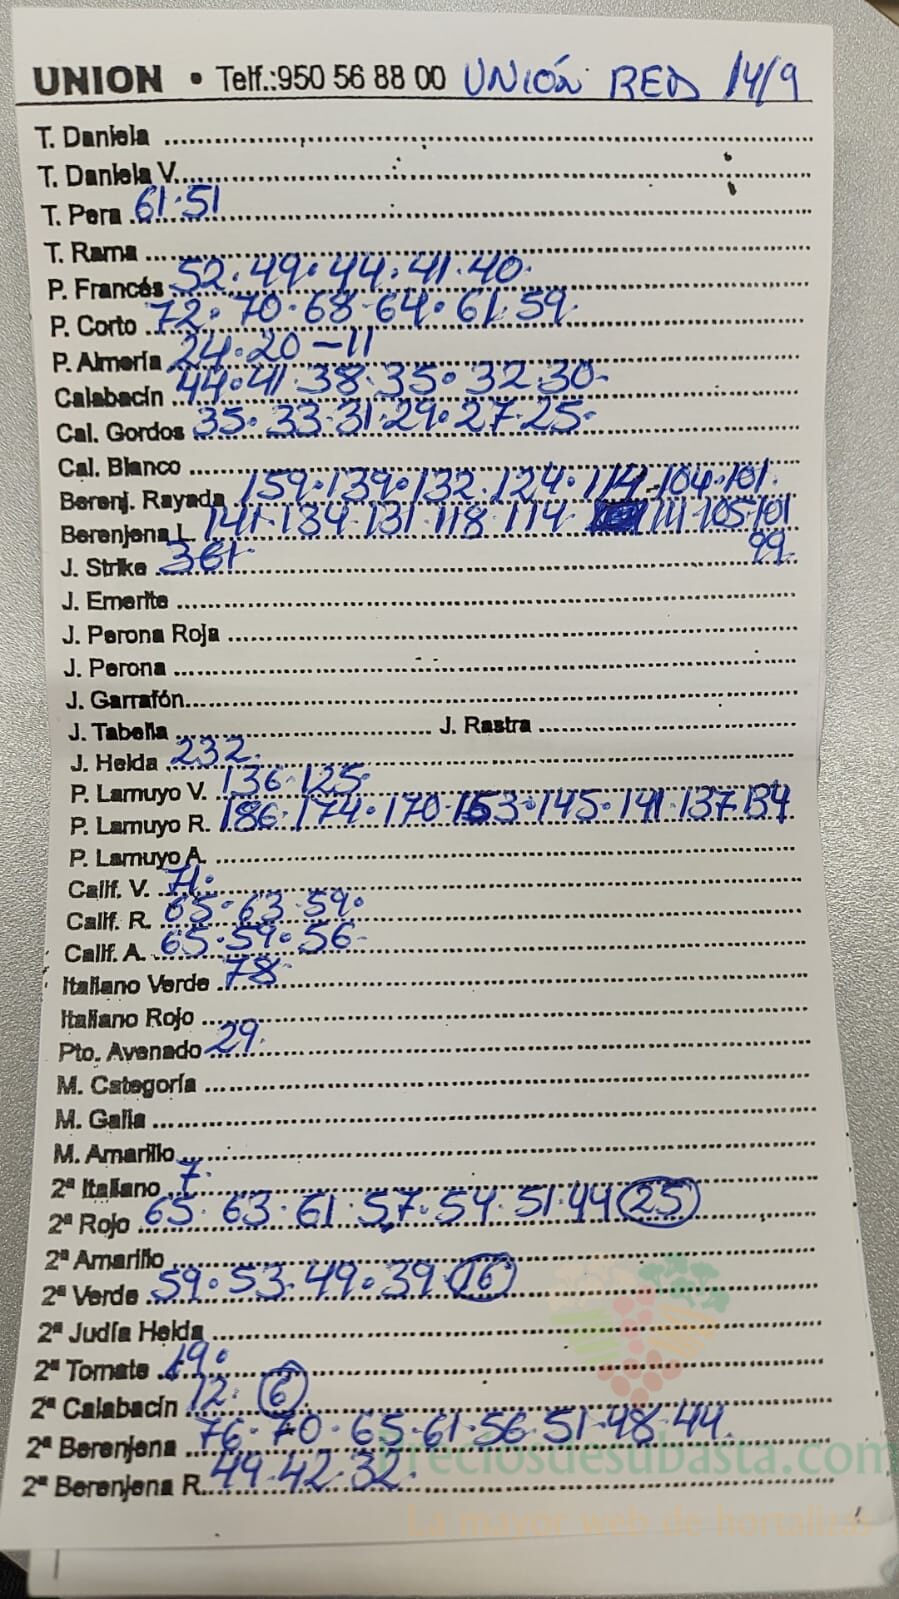 UNION • Telf.:950 56 88 00 UNIÓN RED 14/9
T. Daniela
T. Daniela V.
T. Pera 61·51
T. Rama
P. Francés 52·49·44·41·40·
P. Corto 72·70·68·64·61·59·
P. Almería 24·20-11
Calabacín 44·41·38·35·32·30-
Cal. Gordos 35·33·31·29·27·25·
Cal. Blanco
Berenj. Rayada 159·139·132·124·114·104·101·
Berenjena L. 141·134·131·118·114· 111·105·101
99-
J. Strike 361·
J. Emerite
J. Perona Roja
J. Perona
J. Garrafón
J. Tabella J. Rastra
J. Helda 232·
P. Lamuyo V. 136·125·
P. Lamuyo R. 186·174·170·153·145·141·137·134
P. Lamuyo A.
Calif. V. 71·
Calif. R. 65·63·59·
Calif. A. 65·59·56-
Italiano Verde 78·
Italiano Rojo
Pto. Avenado 29·
M. Categoría
M. Galia
M. Amarillo
2ª Italiano 7·
2ª Rojo 65·63·61·57·54·51·44 25
2ª Amarillo
2ª Verde 59·53·49·39· 16
2ª Judía Helda
2ª Tomate 19·
2ª Calabacín 12· 6
2ª Berenjena 76·70·65·61·56·51·48·44·
2ª Berenjena R. 49·42·32·
Preciosdesubasta.com
La mayor web de hortalizas